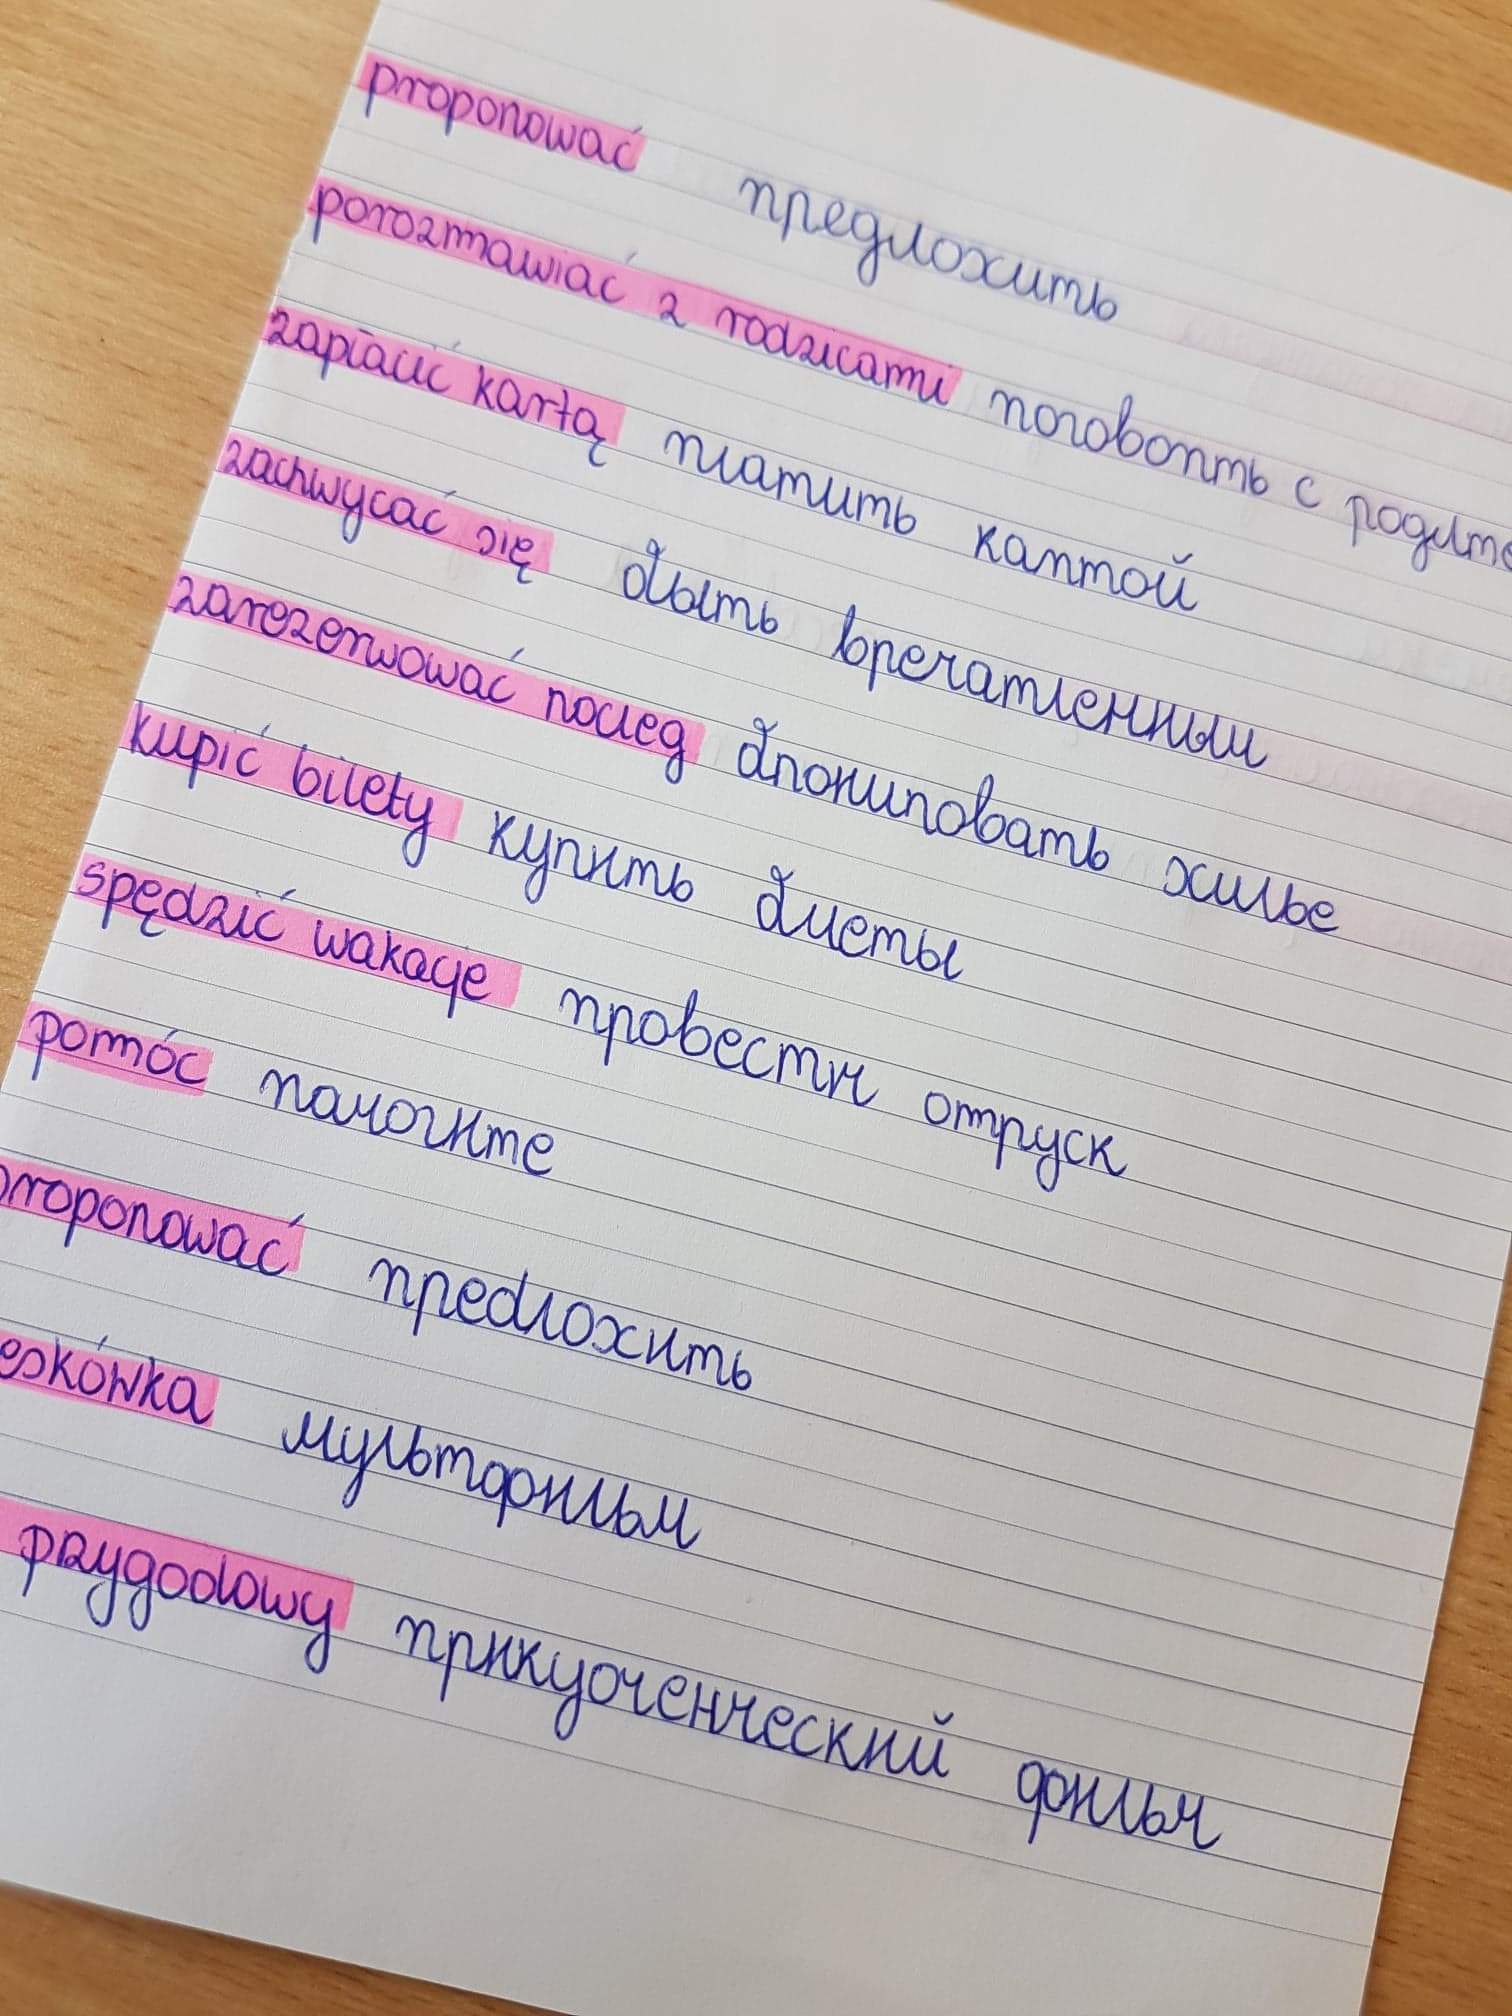 proponować предложить
porozmawiać z rodzicami поговопть с родите
zapłacić kartą платить каптой
zachwycać się быть вречатленным
zarezerwować nocleg бпониповать жилье
kupić bilety купить билеты
spędzić wakacje провести отпуск
pomóc помогите
proponować предложить
eskówka мультфильм
przygodowy прикуоченческий фильм